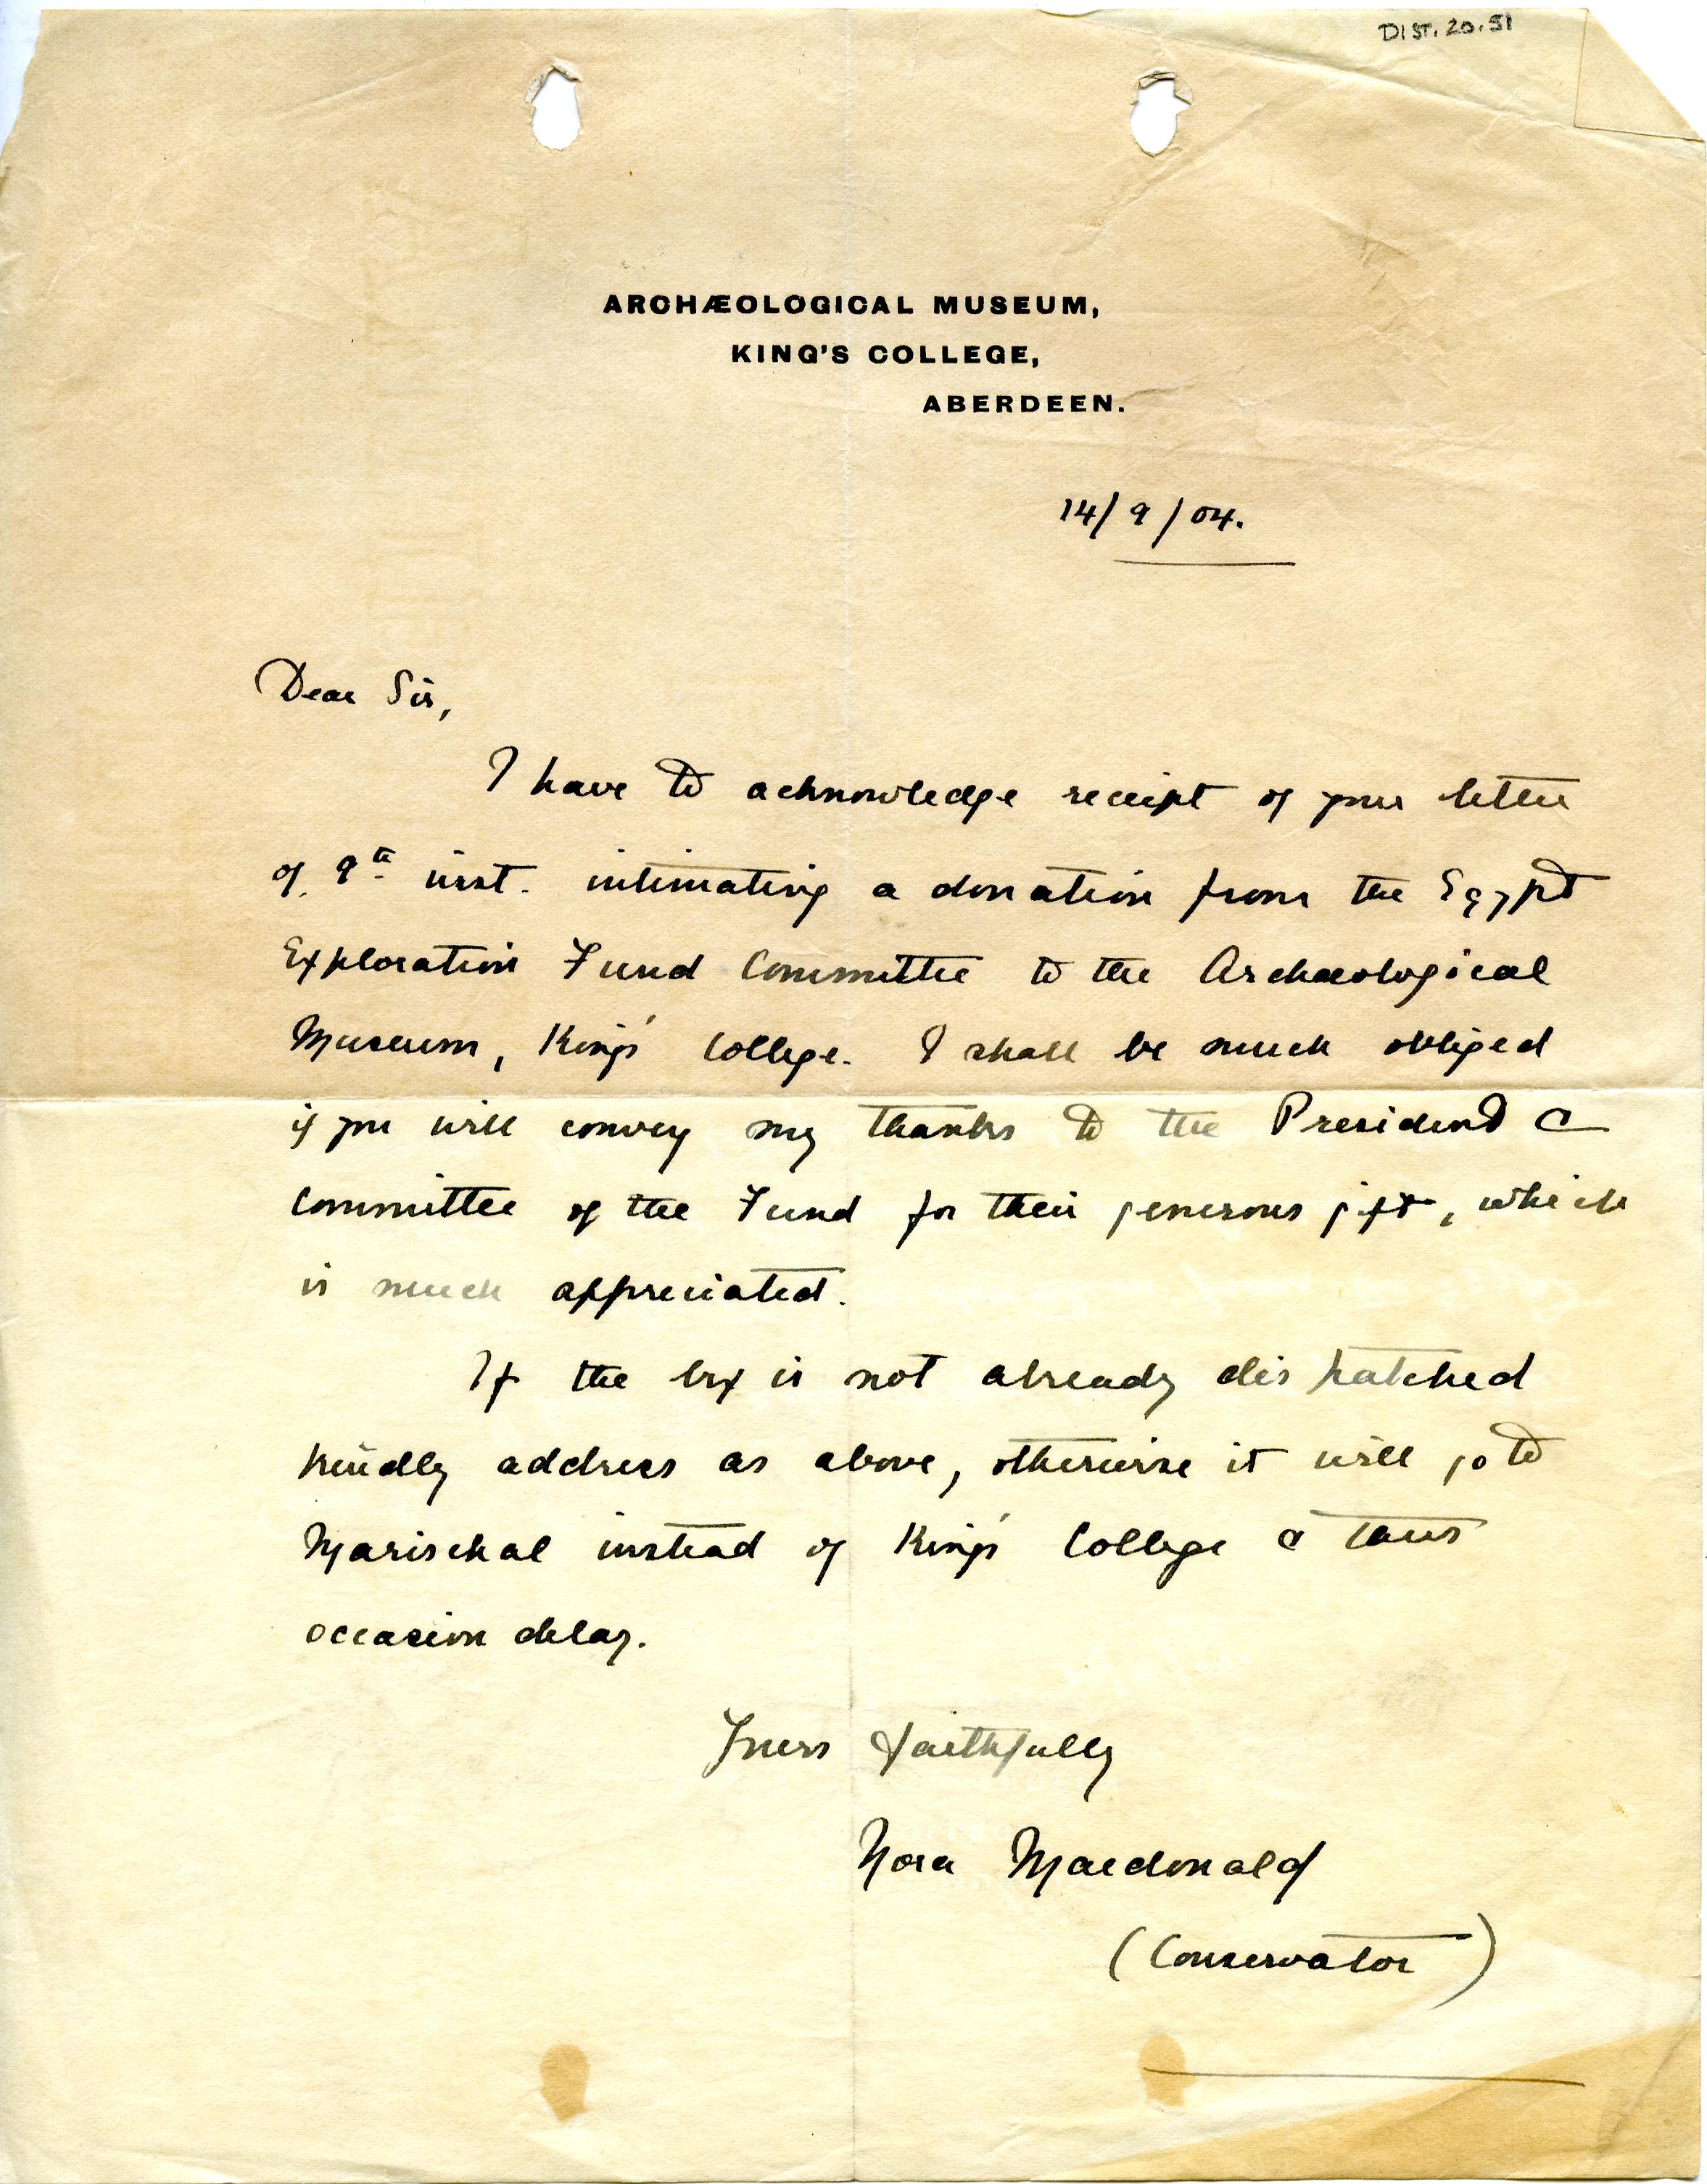 DIST. 20. 51
ARCHÆOLOGICAL MUSEUM,
KING'S COLLEGE,
ABERDEEN.
14/9/04.
Dear Sir,
I have to acknowledge receipt of your letter
of 9th inst. intimating a donation from the Egypt
Exploration Fund Committee to the Archaeological
Museum, King's College. I shall be much obliged
if you will convey my thanks to the President &
Committee of the Fund for their generous gift, which
is much appreciated.
If the box is not already dispatched
kindly address as above, otherwise it will go to
Marischal instead of King's College & thus
occasion delay.
Yours faithfully
Nora Macdonald
(Conservator)